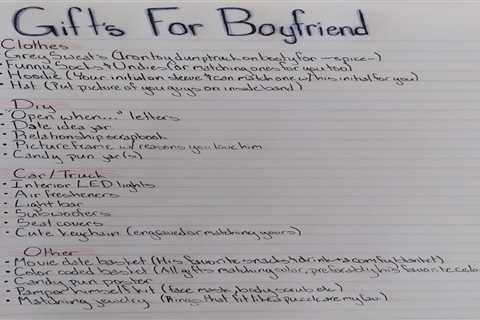 Gifts For Boyfriend
Clothes
• Grey Sweats (Iron toy dumptruck on booty for ~spice~)
• Funny Socks & Undies (or matching ones for you too)
• Hoodie (Your initial on sleeve & can match one w/ his initial for you)
• Hat (Put picture of you guys on inside band)
Diy
• "Open when..." letters
• Date idea jar
• Relationship scrapbook
• Picture frame w/ reasons you love him
• Candy pun jar(s)
Car/Truck
• Interior LED lights
• Air fresheners
• Light bar
• Subwoofers
• Seat covers
• Cute Keychain (engraved or matching yours)
Other
• Movie date basket (His favorite snacks & drink + a comfy blanket)
• Color coded basket (All gifts matching color, preforably his favorite color
• Candy pun poster
• Pamper himself kit (face mask, body scrub etc)
• Matching jewelry (Rings that fit like puzzle are my fav)